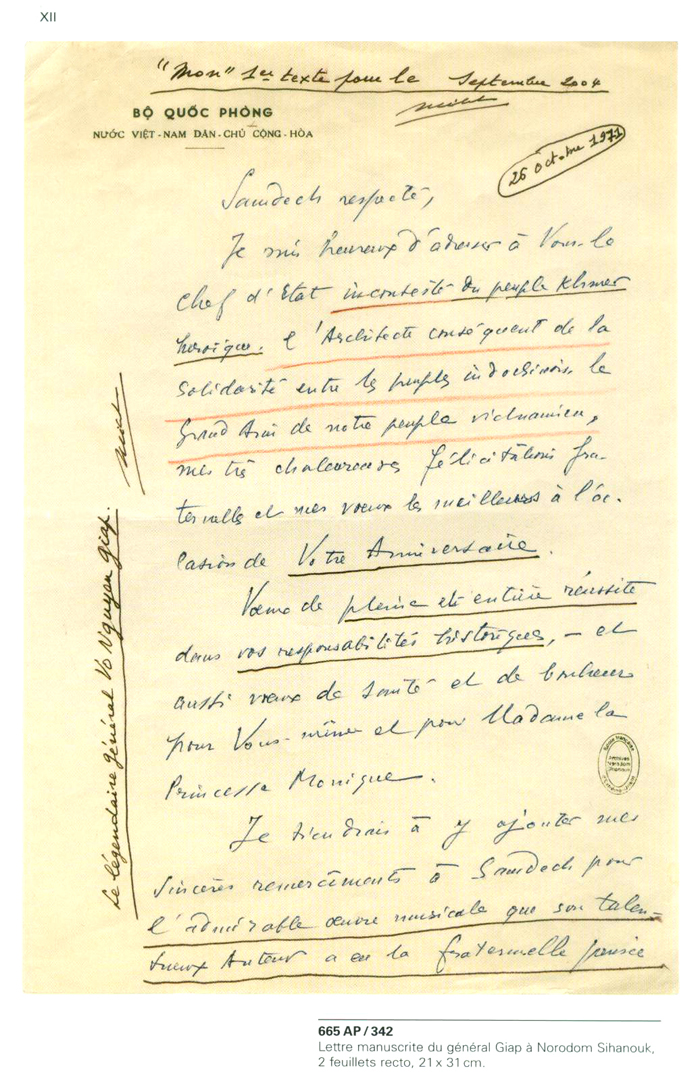 XII
"Mon" 1er texte pour le Septembre 2004
BỘ QUỐC PHÒNG
NƯỚC VIỆT-NAM DÂN-CHỦ CỘNG-HÒA
25 octobre 1971
Samdech respecté,
Je suis heureux d'adresser à Vous le
Chef d'Etat incontesté du peuple Khmer
héroïque, l'Architecte conséquent de la
solidarité entre les peuples indochinois le
Grand Ami de notre peuple vietnamien,
mes très chaleureuses félicitations fra-
ternelles et mes vœux les meilleurs à l'oc-
casion de Votre Anniversaire.
Vœux de pleine et entière réussite
dans vos responsabilités historiques, — et
aussi vœux de santé et de bonheur
pour Vous-même et pour Madame la
Princesse Monique.
Je tiendrais à y ajouter mes
sincères remerciements à Samdech pour
l'admirable œuvre musicale que son talen-
tueux Auteur a eu la fraternelle pensée
Le légendaire général Vo Nguyen Giap.
665 AP / 342
Lettre manuscrite du général Giap à Norodom Sihanouk,
2 feuillets recto, 21 x 31 cm.